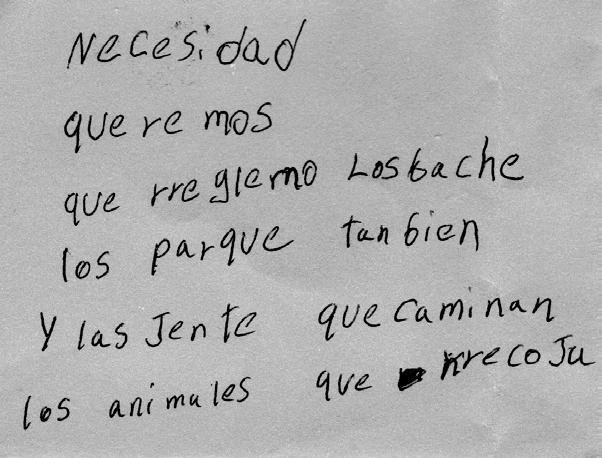 Necesidad
que re mos
que rreglemo Losbache
los parque tanbien
Y las Jente que caminan
los animales que rrecoJa